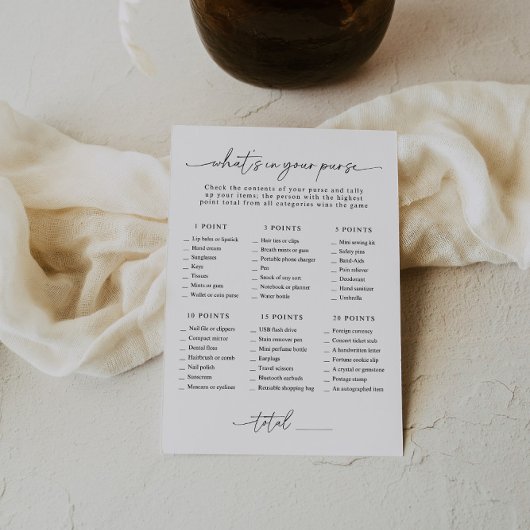 what's in your purse
Check the contents of your purse and tally
up your items; the person with the highest
point total from all categories wins the game
1 POINT
__ Lip balm or lipstick
__ Hand cream
__ Sunglasses
__ Keys
__ Tissues
__ Mints or gum
__ Wallet or coin purse
3 POINTS
__ Hair ties or clips
__ Breath mints or gum
__ Portable phone charger
__ Pen
__ Snack of any sort
__ Notebook or planner
__ Water bottle
5 POINTS
__ Mini sewing kit
__ Safety pins
__ Band-Aids
__ Pain reliever
__ Deodorant
__ Hand sanitizer
__ Umbrella
10 POINTS
__ Nail file or clippers
__ Compact mirror
__ Dental floss
__ Hairbrush or comb
__ Nail polish
__ Sunscreen
__ Mascara or eyeliner
15 POINTS
__ USB flash drive
__ Stain remover pen
__ Mini perfume bottle
__ Earplugs
__ Travel scissors
__ Bluetooth earbuds
__ Reusable shopping bag
20 POINTS
__ Foreign currency
__ Concert ticket stub
__ A handwritten letter
__ Fortune cookie slip
__ A crystal or gemstone
__ Postage stamp
__ An autographed item
total ______